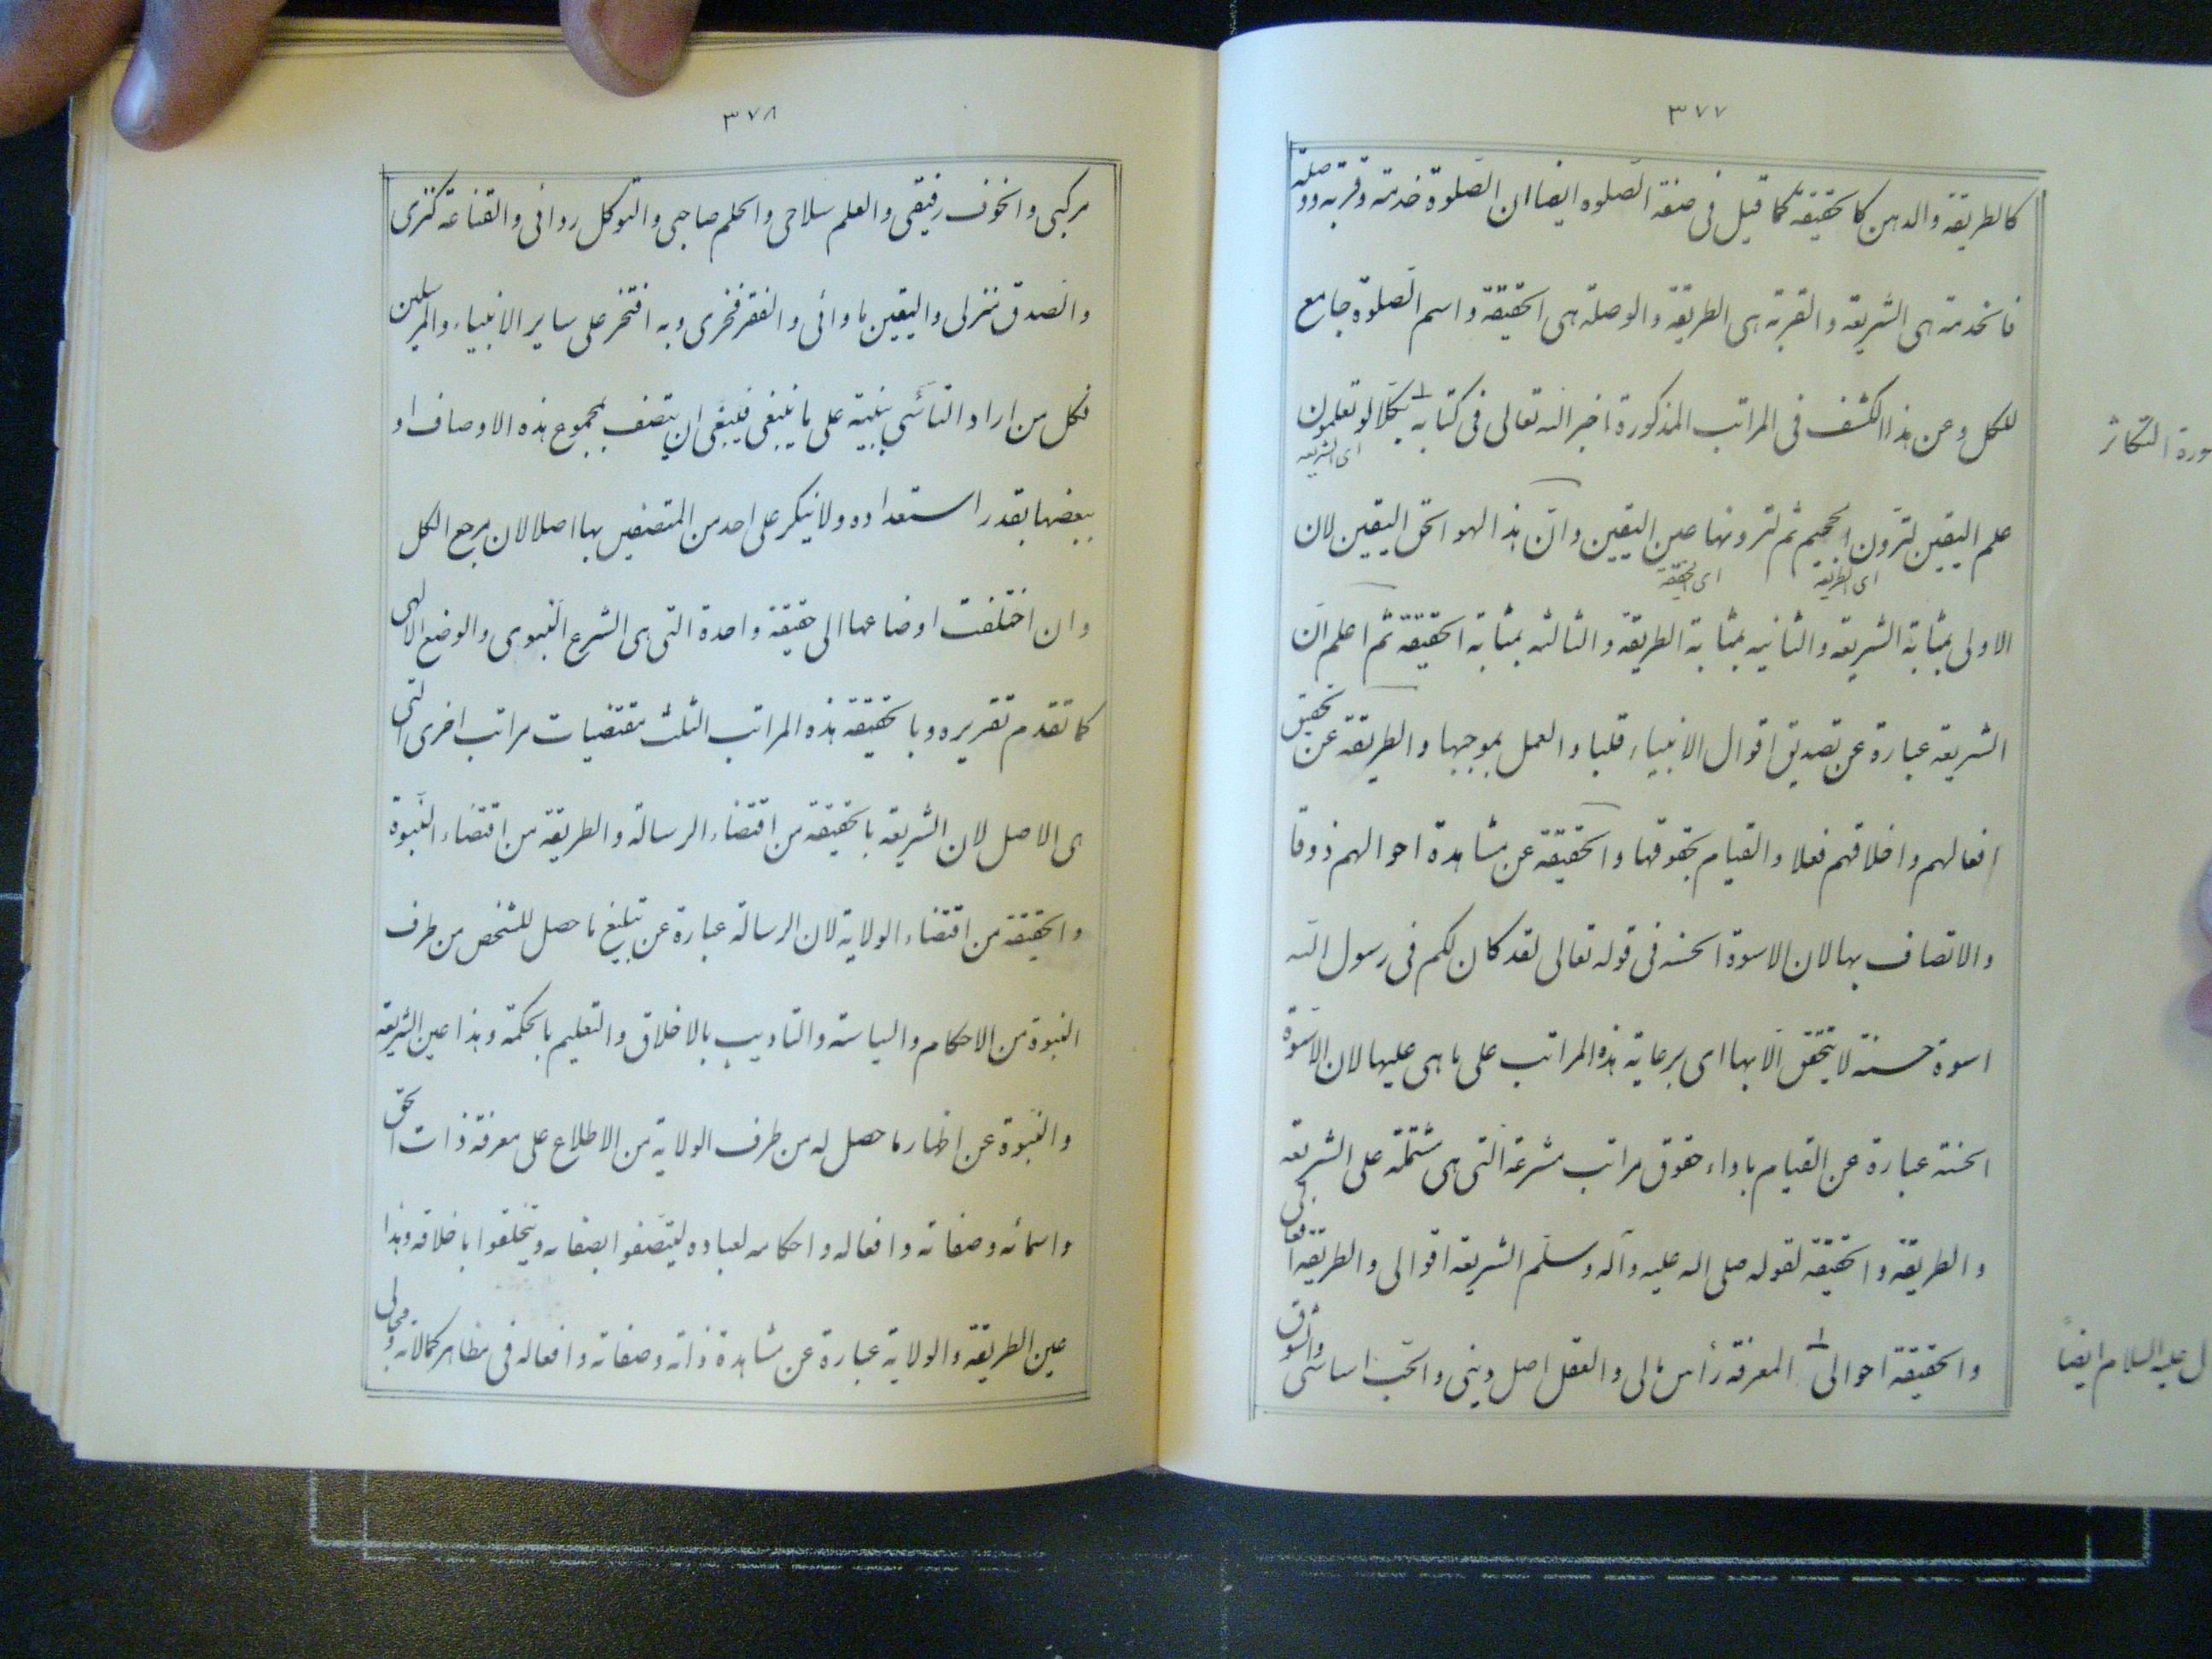 ٣٧٧
كالطريقة والدهن كالحقيقة كما قيل فى صفة الصّلوه ايضا ان الصّلوة خدمة وقربه ووصلة
فالخدمة هى الشريعه والقربة هى الطريقة والوصلة هى الحقيقة واسم الصّلوة جامع
للكل وعن هذا الكشف فى المراتب المذكورة اخبر الله تعالى فى كتابه بكلا لو تعلمون
اى الشريعه
سورة التكاثر
علم اليقين لترون الجحيم ثم لترونها عين اليقين وانّ هذا لهو الحق اليقين لان
اى الطريقة اى الحقيقة
الاولى بمثابة الشريعه والثانيه بمثابة الطريقة والثالثه بمثابة الحقيقة ثم اعلم انّ
الشريعه عبارة عن تصديق اقوال الانبياء قلبا والعمل بموجبها والطريقة عن تحقيق
افعالهم واخلاقهم فعلا والقيام بحقوقها والحقيقة عن مشاهدة احوالهم ذوقا
والاتصاف بها لان الاسوة الحسنه فى قوله تعالى لقد كان لكم فى رسول الله
اسوة حسنة لا يتحقق الّا بها اى برعاية هذه المراتب على ما هى عليها لان الاسوة
الحسنة عبارة عن القيام باداء حقوق مراتب مشرعة التى هى مشتملة على الشريعه
والطريقة والحقيقة لقوله صلى الله عليه وآله وسلّم الشريعه اقوالى والطريقة افعالى
والحقيقة احوالى المعرفة رأس مالى والعقل اصل دينى والحبّ اساسى والشوق
ل عليه السلام ايضاً
٣٧٨
مركبى والخوف رفيقى والعلم سلاحى والحلم صاحبى والتوكل ردائى والقناعة كنزى
والصدق منزلى واليقين ماوائى والفقر فخرى وبه افتخر على ساير الانبياء والمرسلين
فكل من اراد التأسّى بنبيه على ما ينبغى فينبغى ان يتصف بمجموع هذه الاوصاف او
ببعضها بقدر استعداده ولا ينكر على احد من المتصفين بها اصلا لان مرجع الكل
وان اختلفت اوضاعها الى حقيقة واحدة التى هى الشرع النّبوى والوضع الالهى
كما تقدم تقريره وبالحقيقة هذه المراتب الثلث مقتضيات مراتب اخرى التى
هى الاصل لان الشريعه بالحقيقة من اقتضاء الرسالة والطريقة من اقتضاء النّبوة
والحقيقة من اقتضاء الولاية لان الرسالة عبارة عن تبليغ ما حصل للشخص من طرف
النبوة من الاحكام والسياسة والتاديب بالاخلاق والتعليم بالحكمة وهذا عين الشريعه
والنّبوة عن اظهار ما حصل له من طرف الولاية من الاطلاع على معرفة ذات الحق
واسمائه وصفاته وافعاله واحكامه لعباده ليتّصفوا بصفاته ويتخلقوا باخلاقه وهذا
عين الطريقة والولاية عبارة عن مشاهدة ذاته وصفاته وافعاله فى مظاهر كمالاته ومجالى